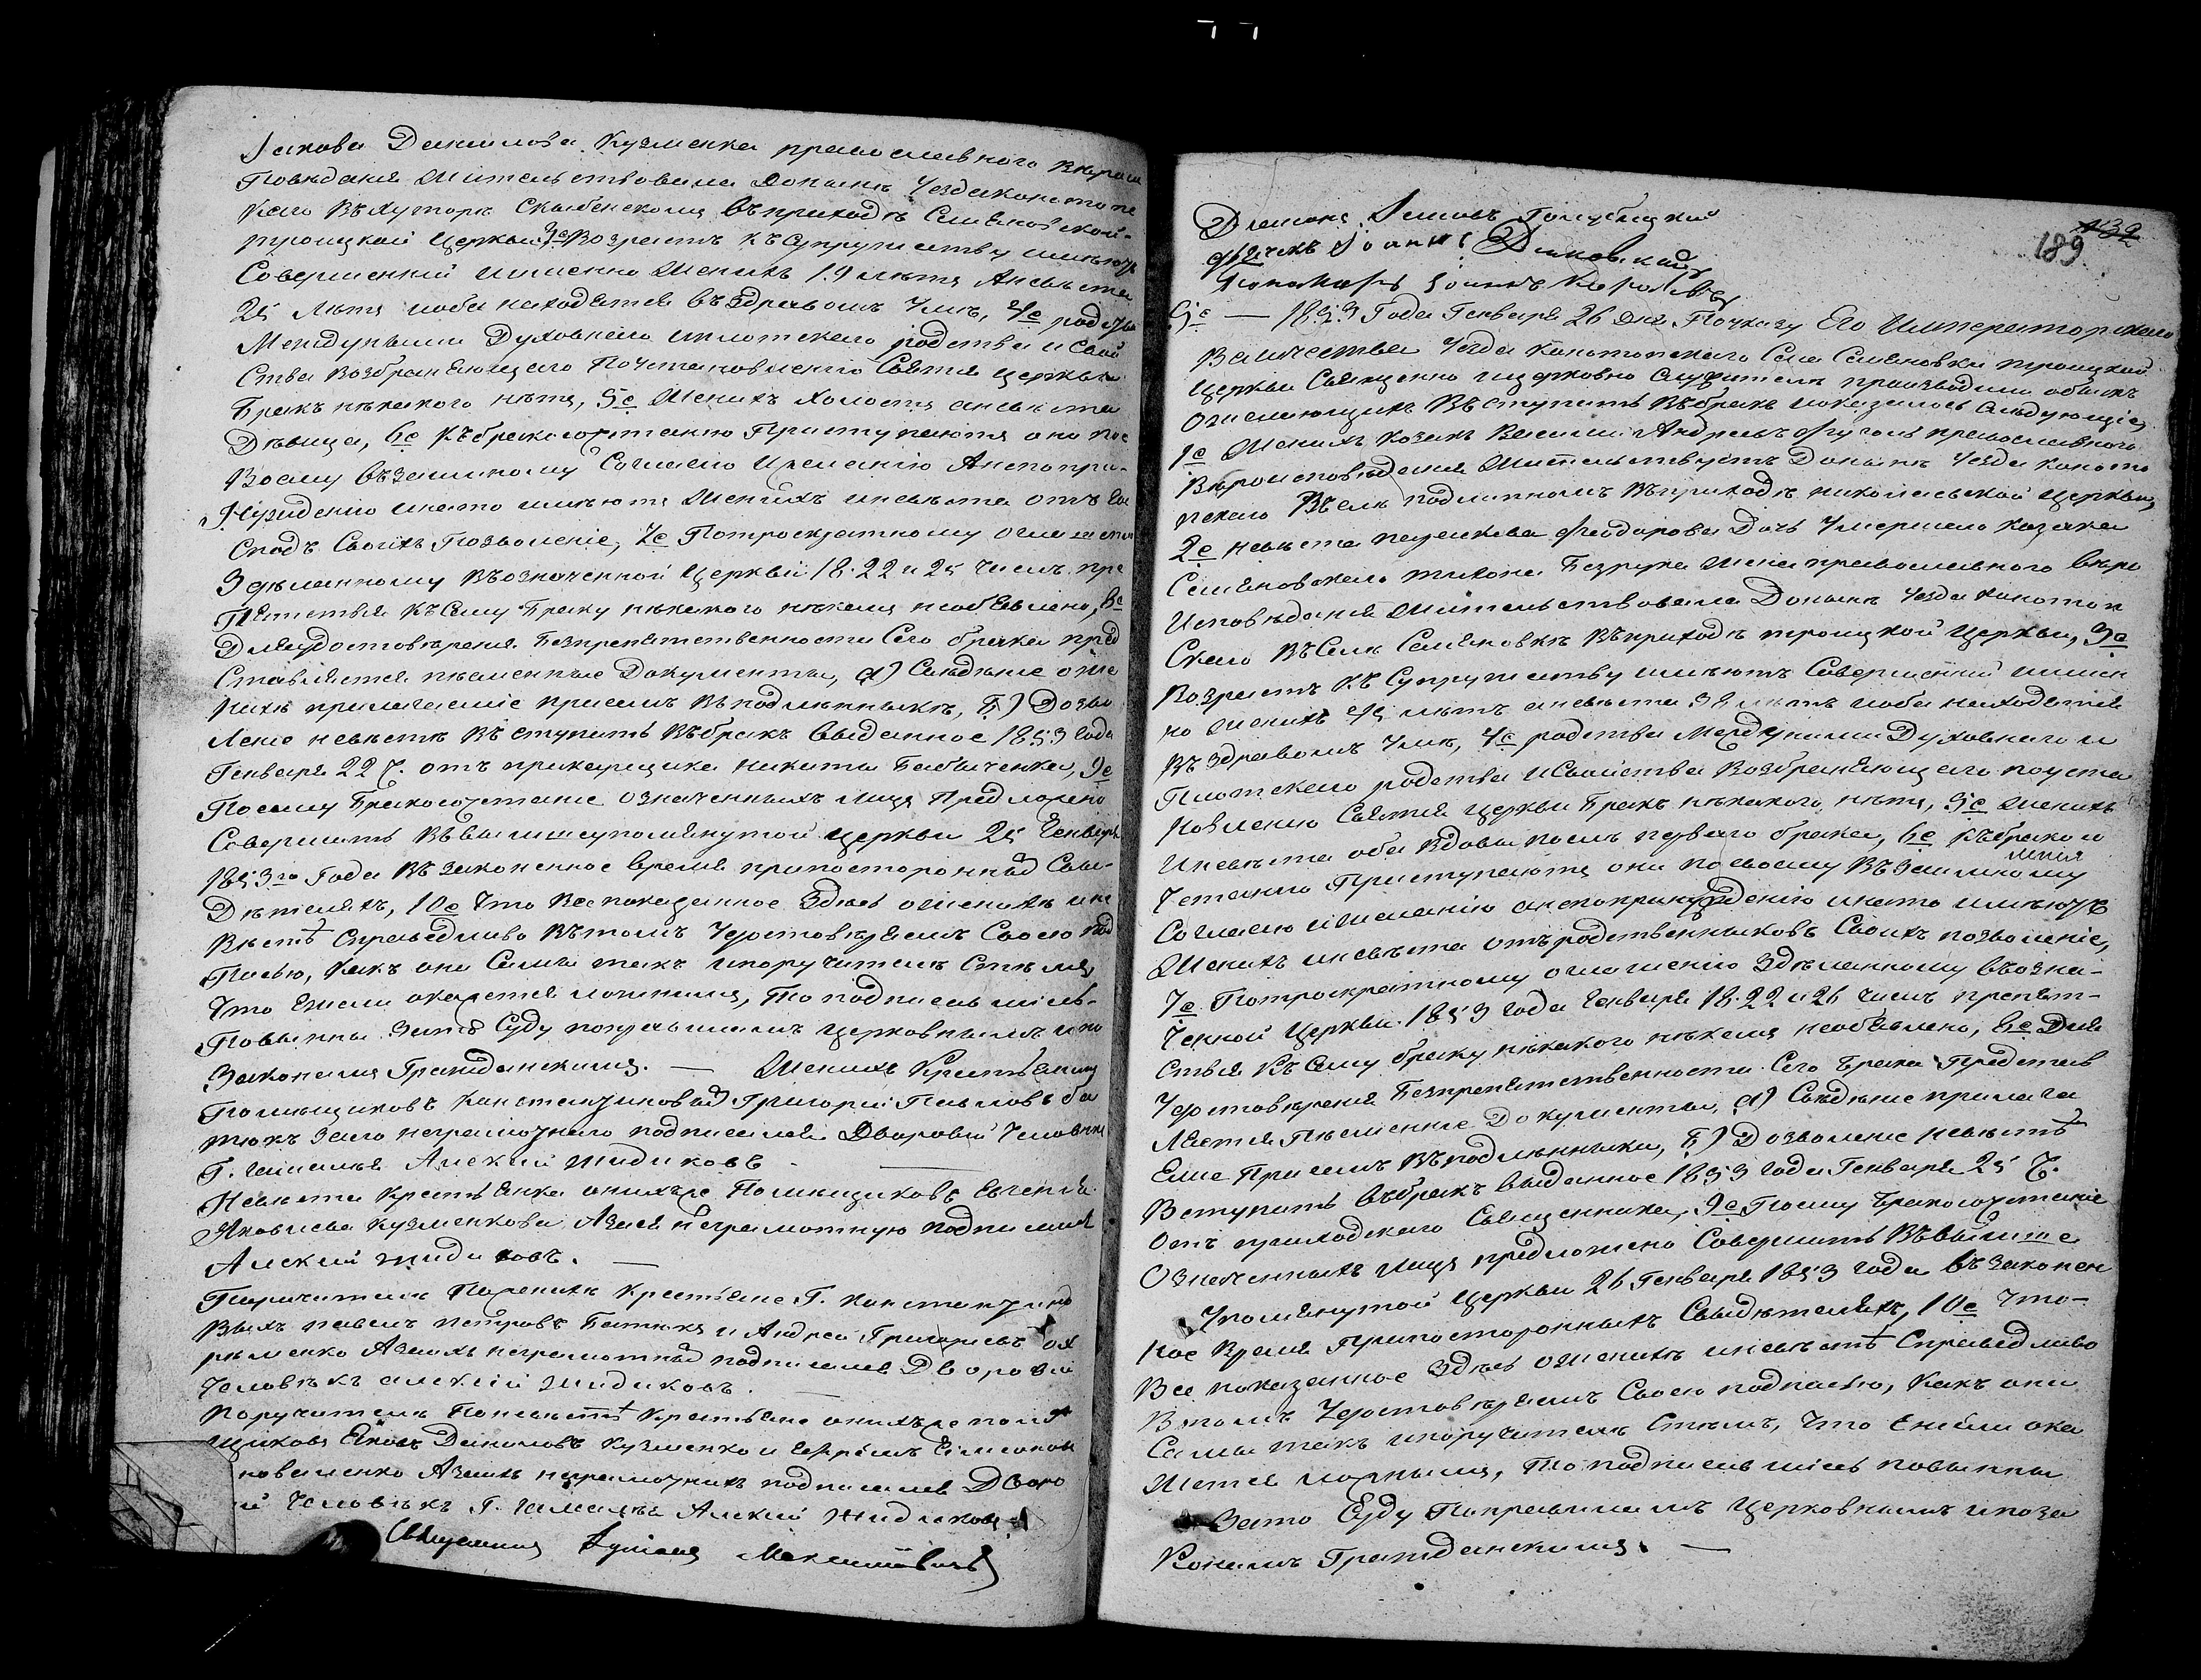 Іакова Данилова Кузменка православного вѣроис
Повѣданія Жительствовала донынѣ Уезда Конотопс
каго Въ хуторѣ въ приходѣ Семеновской
троицкой Церкви, 3е Возрастъ къ Супружеству имеютъ
Совершенній именно Женихъ 19 лѣтъ Аневѣста
25 лѣтъ иоба находятся въ здравомъ Умѣ, 4е родства
Междуними Духовнаго иплотскаго родства и Свой
Ства возбраняющаго Поустановленію Святія церкви
Бракъ нѣкакого нѣтъ, 5е Женихъ Холостъ аневѣста
Дѣвица, 6е Къ бракосочетанію Приступаютъ они пос
Воему Взаимному Согласію Ижеланію Анепопри-
Нуждению инато имеютъ Женихъ иневѣста отъ Гос
Подъ Своихъ Позволеніе, 7е Потроекратному Огласител
Здѣланному Въозначенной Церкви 18. 22 и 25 Числъ пре
Пятствія Къ Сему Браку нѣкакого нѣкемъ необъявлено, 8е
Дляудостовѣренія Безпрепятственности Сего брака пред
Ставляются писменніе Документы, а) Свѣдѣніе ожи
нихѣ прилагаеміе присемъ Въ подлѣнныкѣ, Б) Дозво
леніе невѣстѣ Въступить Въбракъ Выданное 1853 Года
Генваря 22 Ч. отъ прикащика Никиты Бабыченка, 9е
Посему Бракосочетаніе означенныхъ лицъ Предложено
Совершить Въвышеупомянутой Церкви 25 Генваря
1853го Года Въ законенное время припосторонныхъ Сви-
Дѣтеляхъ, 10е Что Все показанное Здѣсь ожинихѣ ине
Вѣстѣ Справедливо Вътомъ Удостовѣряемъ Своею Под
Писью, Какъ они Сами такъ ипоручители Стѣмъ
Что Ежели окажется ложнимъ, То подписавшіесь
Повынны Зато Суду поправиламъ церковнымъ ипо
Законамъ Гражданскимъ. — Женихъ Крестьянинъ
Помѣщиковъ Константиновыхъ Григорій Павловъ Ба
тюкъ Заего неграмотнаго подписался Дворовій Человѣкъ
Г. Алексій Жидиковъ
Невѣста Крестьянка онихъже Помѣщиковъ Евгенія
Яковлева Кузменкова Азаея Неграмотную подписался
Алексій Жидиковъ. —
Поручители Поженихѣ Крестьяне Г. Константино
Выхъ павелъ петровъ Батюкъ и Андрей Григориевъ
Азаихъ неграмотныхъ подписался Дворовій
Человѣкъ алексій Жидиковъ. —
Поручители Поневѣстѣ Крестьяне онихъже помѣ
щиковъ Яковъ Даниловъ Кузменко и Ефремъ
Азаихъ неграмотнихъ подписался Дворо
й Человѣкъ Г. Алексій Жидиковъ
Священникъ Максимовичъ
Диаконъ Голубицкій
дячекъ Іоаннъ
Пономаръ Іоаннъ
139
189
5е — 1853 Года Генваря 26 дня Поуказу Его Императорскаго
Величества Уезда Конотопскаго Села Семяновки троицкой
Церкви Священно ицерковно Служители производили обыскъ
ожелающихъ Въступить Въбракъ иоказалось Слѣдующіе,
1е Женихъ Козакъ Василій Андреевъ православного
Вѣроисповѣданія Жительствуетъ Донынѣ Уезда Коното
пскаго Въселѣ подлипномъ Въприходѣ николаевской Церкви,
2е невѣста параскева Феодорова Дочь Умершаго Козака
Семяновскаго тихона Безрука Жена православного Вѣро
Исповѣданія Жительствовала Донынѣ Уезда Конотоп
Скаго Въ Селѣ Семяновкѣ Въприходѣ троицкой Церкви, 3е
Возрастъ Къ Супружеству имѣютъ Совершенній имен
но Женихъ лѣтъ аневѣста 38 лѣтъ иоба находятся
Въ здравомъ Умѣ, 4е родства Междуними Духовнаго и
Плотскаго родства иСвойства Возбраняющаго поуста
Новленію Святія Церкви Бракъ нѣкакого нѣтъ, 5е Женихъ
Иневѣста оба Вдовы послѣ перваго брака, 6е Къбракосо
Четанію Приступаютъ они посвоему Въ Заимному
Согласію иЖеланію анепопринуждѣнію инато имѣютъ
Женихъ иневѣста отъродственныковъ Своихъ позволеніе,
7е Потроекратному оглошенію Здѣланному Възна-
ченной Церкви 1853 года Генваря 18. 22 и 26 Числъ препят-
Ствія Къ Сему браку нѣкакого нѣкемъ необъявлено, 8е Для
Удостовѣренія Безпрепятственности Сего Брака Представ
ляются Писменніе Документы, а) Свѣдѣніе прилага
Емое Присемъ Въподлѣнныкѣ, Б) Дозволеніе невѣстѣ
Вступить Въбракъ Выданное 1853 года Генваря 25 Ч.
Отъ приходскаго Священника, 9е Посему Бракосочетаніе
Означенныхъ лицъ предложено Совершить Въвыше
Упомянутой Церкви 26 Генваря 1853 года Въ Законен
ное Время Припосторонныхъ Свидѣтеляхъ, 10е Что-
Все показанное Здѣсь ожинихѣ иневѣстѣ Справедливо
Втомъ Удостовѣряемъ Своею подписью, Какъ они
Сами такъ ипоручители Стѣмъ, Что Ежели ока
Жется ложнымъ, То подписавшіесь повынны
Зато Суду Поправиламъ Церковнымъ ипоза
Конамъ Гражданскимъ. —